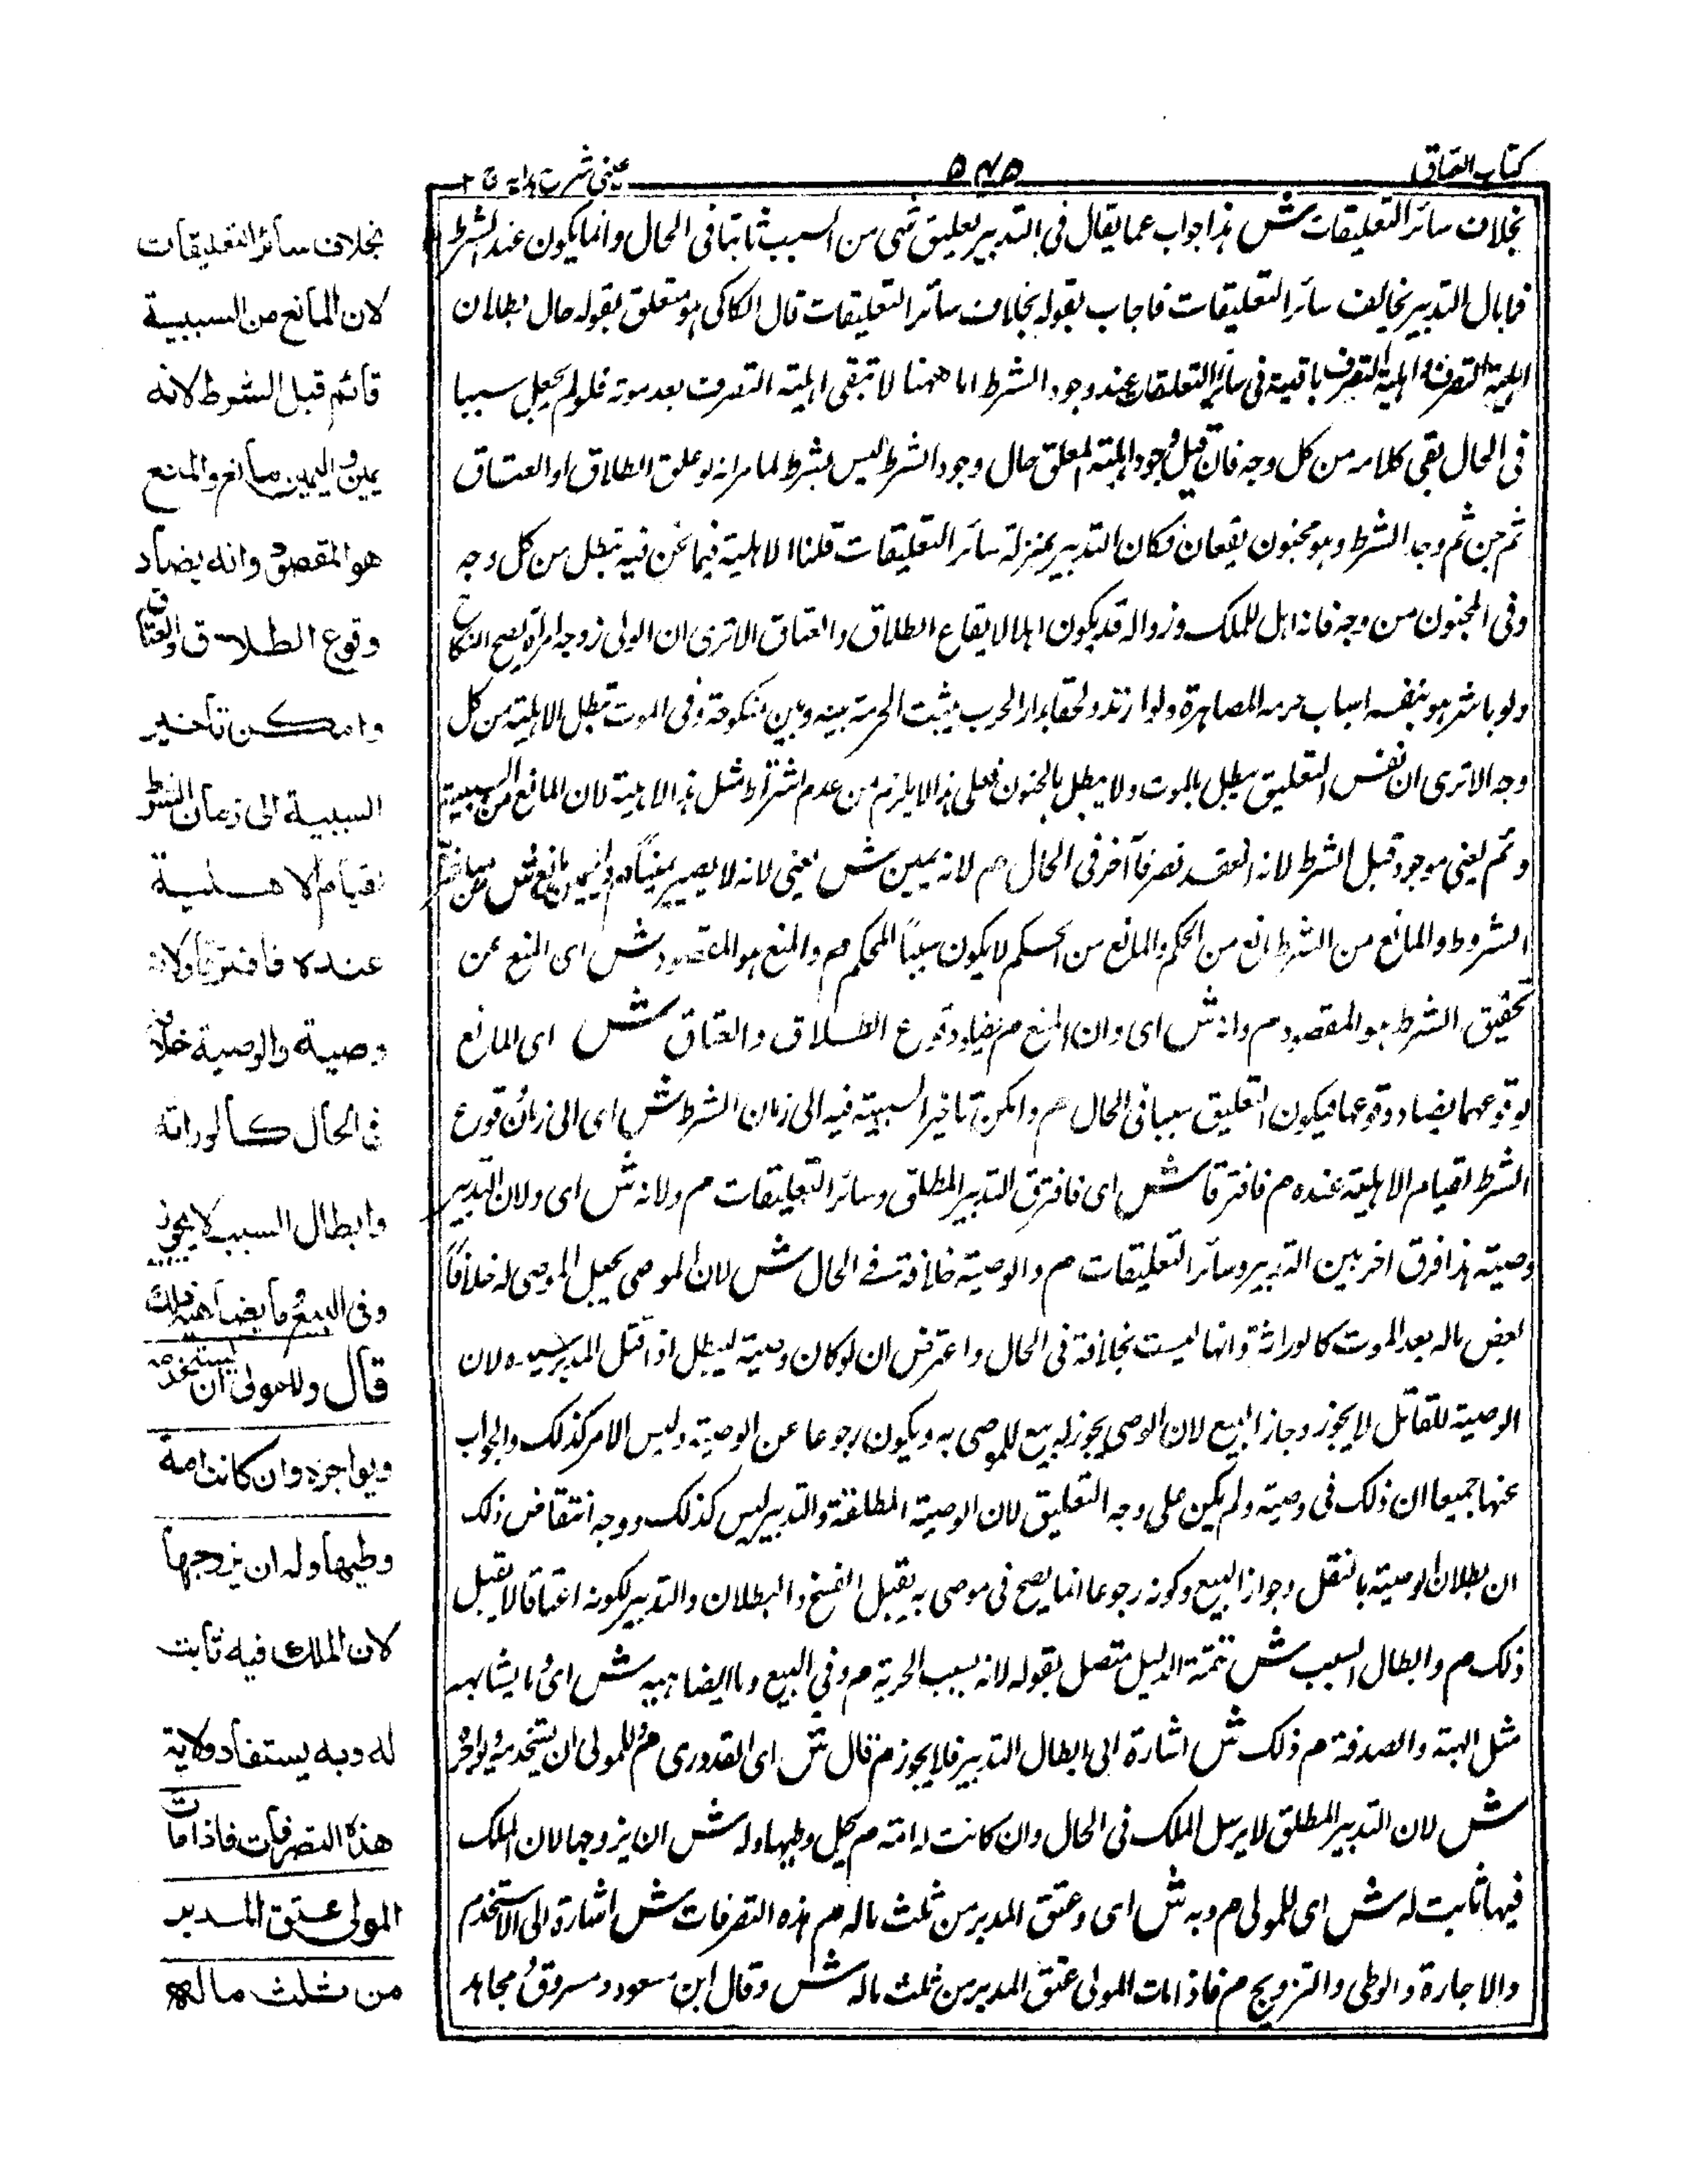 كتاب العتاق
٥٧٥
عينى شرح هدايه ج ٢
بخلاف سائر التعليقات ش هذا جواب عما يقال فى التدبير تعليق شى من السبب ثابتا فى الحال وانما يكون عند الشرط
فما بال التدبير يخالف سائر التعليقات فاجاب بقوله بخلاف سائر التعليقات قال الكاكى هو متعلق بقوله حال بطلان
اهلية التصرف واهلية التصرف باقية فى سائر التعليقات عند وجود الشرط اما ههنا لا تبقى اهلية التصرف بعد موته فلو لم يجعل سببا
فى الحال بقى كلامه من كل وجه فان قيل وجود اهلية المعلق حال وجود الشرط ليس بشرط لما مر انه لو علق الطلاق او العتاق
ثم جن ثم وجد الشرط وهو مجنون يقعان فكان التدبير بمنزلة سائر التعليقات قلنا الاهلية فيما نحن فيه تبطل من كل وجه
وفى المجنون من وجه فانه اهل للملك وزواله قد يكون اهلا لايقاع الطلاق والعتاق الاترى ان الولى زوجه امراة يصح النكاح
ولو باشر هو بنفسه اسباب حرمه المصاهرة ولو ارتد ولحقا بدار الحرب يثبت الحرمة بينه وبين منكوحة وفى الموت تبطل الاهلية من كل
وجه الاترى ان نفس التعليق يبطل بالموت ولا يبطل بالجنون فعلى هذا لا يلزم من عدم اشتراط مثل هذه الاهلية لان المانع من السببية
وثم يعنى موجود قبل الشرط لانه انعقد تصرفا آخر فى الحال م لانه يمين ش يعنى لانه لا يصير يمينا م واليمين مانع ش عن مباشرة
الشروط والمانع من الشرط مانع من الحكم والمانع من الحكم لا يكون سببا للحكم م والمنع هو المقصود ش اى المنع عن
تحقيق الشرط هو المقصود م وانه ش اى وان المنع م يضاد وقوع الطلاق والعتاق ش اى المانع
لوقوعهما يضاد وقوعها فيكون التعليق سببا فى الحال م وامكن تاخير السببية فيه الى زمان الشرط ش اى الى زمان وقوع
الشرط لقيام الاهلية عنده م فافترقا ش اى فافترق التدبير المطلق وسائر التعليقات م ولانه ش اى ولان التدبير
وصية هذا فرق اخر بين التدبير وسائر التعليقات م والوصية خلافة فى الحال ش لان الموصى يجعل الموصى له خلافا
بعض ماله بعد الموت كالوراثة وانها ليست بخلافة فى الحال واعترض ان لو كان وصية لبطل اذا قتل المدبر سيده لان
الوصية للقاتل لا يجوز وجاز البيع لان الموصى يجوز له بيع الموصى به ويكون رجوعا عن الوصية وليس الامر كذلك والجواب
عنها جميعا ان ذلك فى وصية ولم يكن على وجه التعليق لان الوصية المطلقة والتدبير ليس كذلك ووجه انتقاض ذلك
ان بطلان الوصية بالقتل وجواز البيع وكونه رجوعا انما يصح فى موصى به يقبل الفسخ والبطلان والتدبير لكونه اعتاقا لا يقبل
ذلك م وابطال السبب ش تتمة الدليل متصل بقوله لانه سبب الحرية م وفى البيع وما ايضاهيه ش اى ما يشابهه
مثل الهبة والصدقة م ذلك ش اشارة الى ابطال التدبير فلا يجوز م قال ش اى القدورى م وللمولى ان يستخدمه ويواجره
ش لان التدبير المطلق لا يزيل الملك فى الحال وان كانت له امة م يحل وطيها وله ش ان يزوجها لان الملك
فيها ثابت له ش اى للمولى م وبه ش اى وعتق المدبر من ثلث ماله م هذه التصرفات ش اشارة الى الاستخدام
والاجارة والوطى والتزويج م فاذا مات المولى عتق المدبر من ثلث ماله ش وقال ابن مسعود ومسروق ومجاهد
بخلاف سائر التعليقات
لان المانع من السببية
قائم قبل الشرط لانه
يمين واليمين مانع والمنع
هو المقصود وانه يضاد
وقوع الطلاق والعتاق
وامكن تأخير
السببية الى زمان الشرط
لقيام الاهلية
عنده فافترقا ولانه
وصية والوصية خلافة
فى الحال كالوراثة
وابطال السبب لا يجوز
وفى البيع وما يضاهيه ذلك
قال وللمولى ان يستخدمه
ويواجره وان كانت امة
وطيها وله ان يزوجها
لان الملك فيه ثابت
له وبه يستفاد ولاية
هذه التصرفات فاذا مات
المولى عتق المدبر
من ثلث ماله